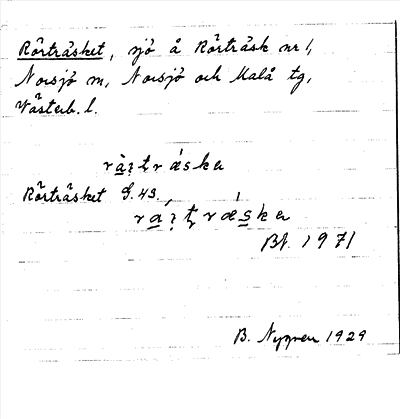 Rörträsket, sjö å Rörträsk nr 1,
Norsjö sn, Norsjö och Malå tg,
Västerb. l.
Rörträsket S. 43.
Bl. 1971
B. Nygren 1929